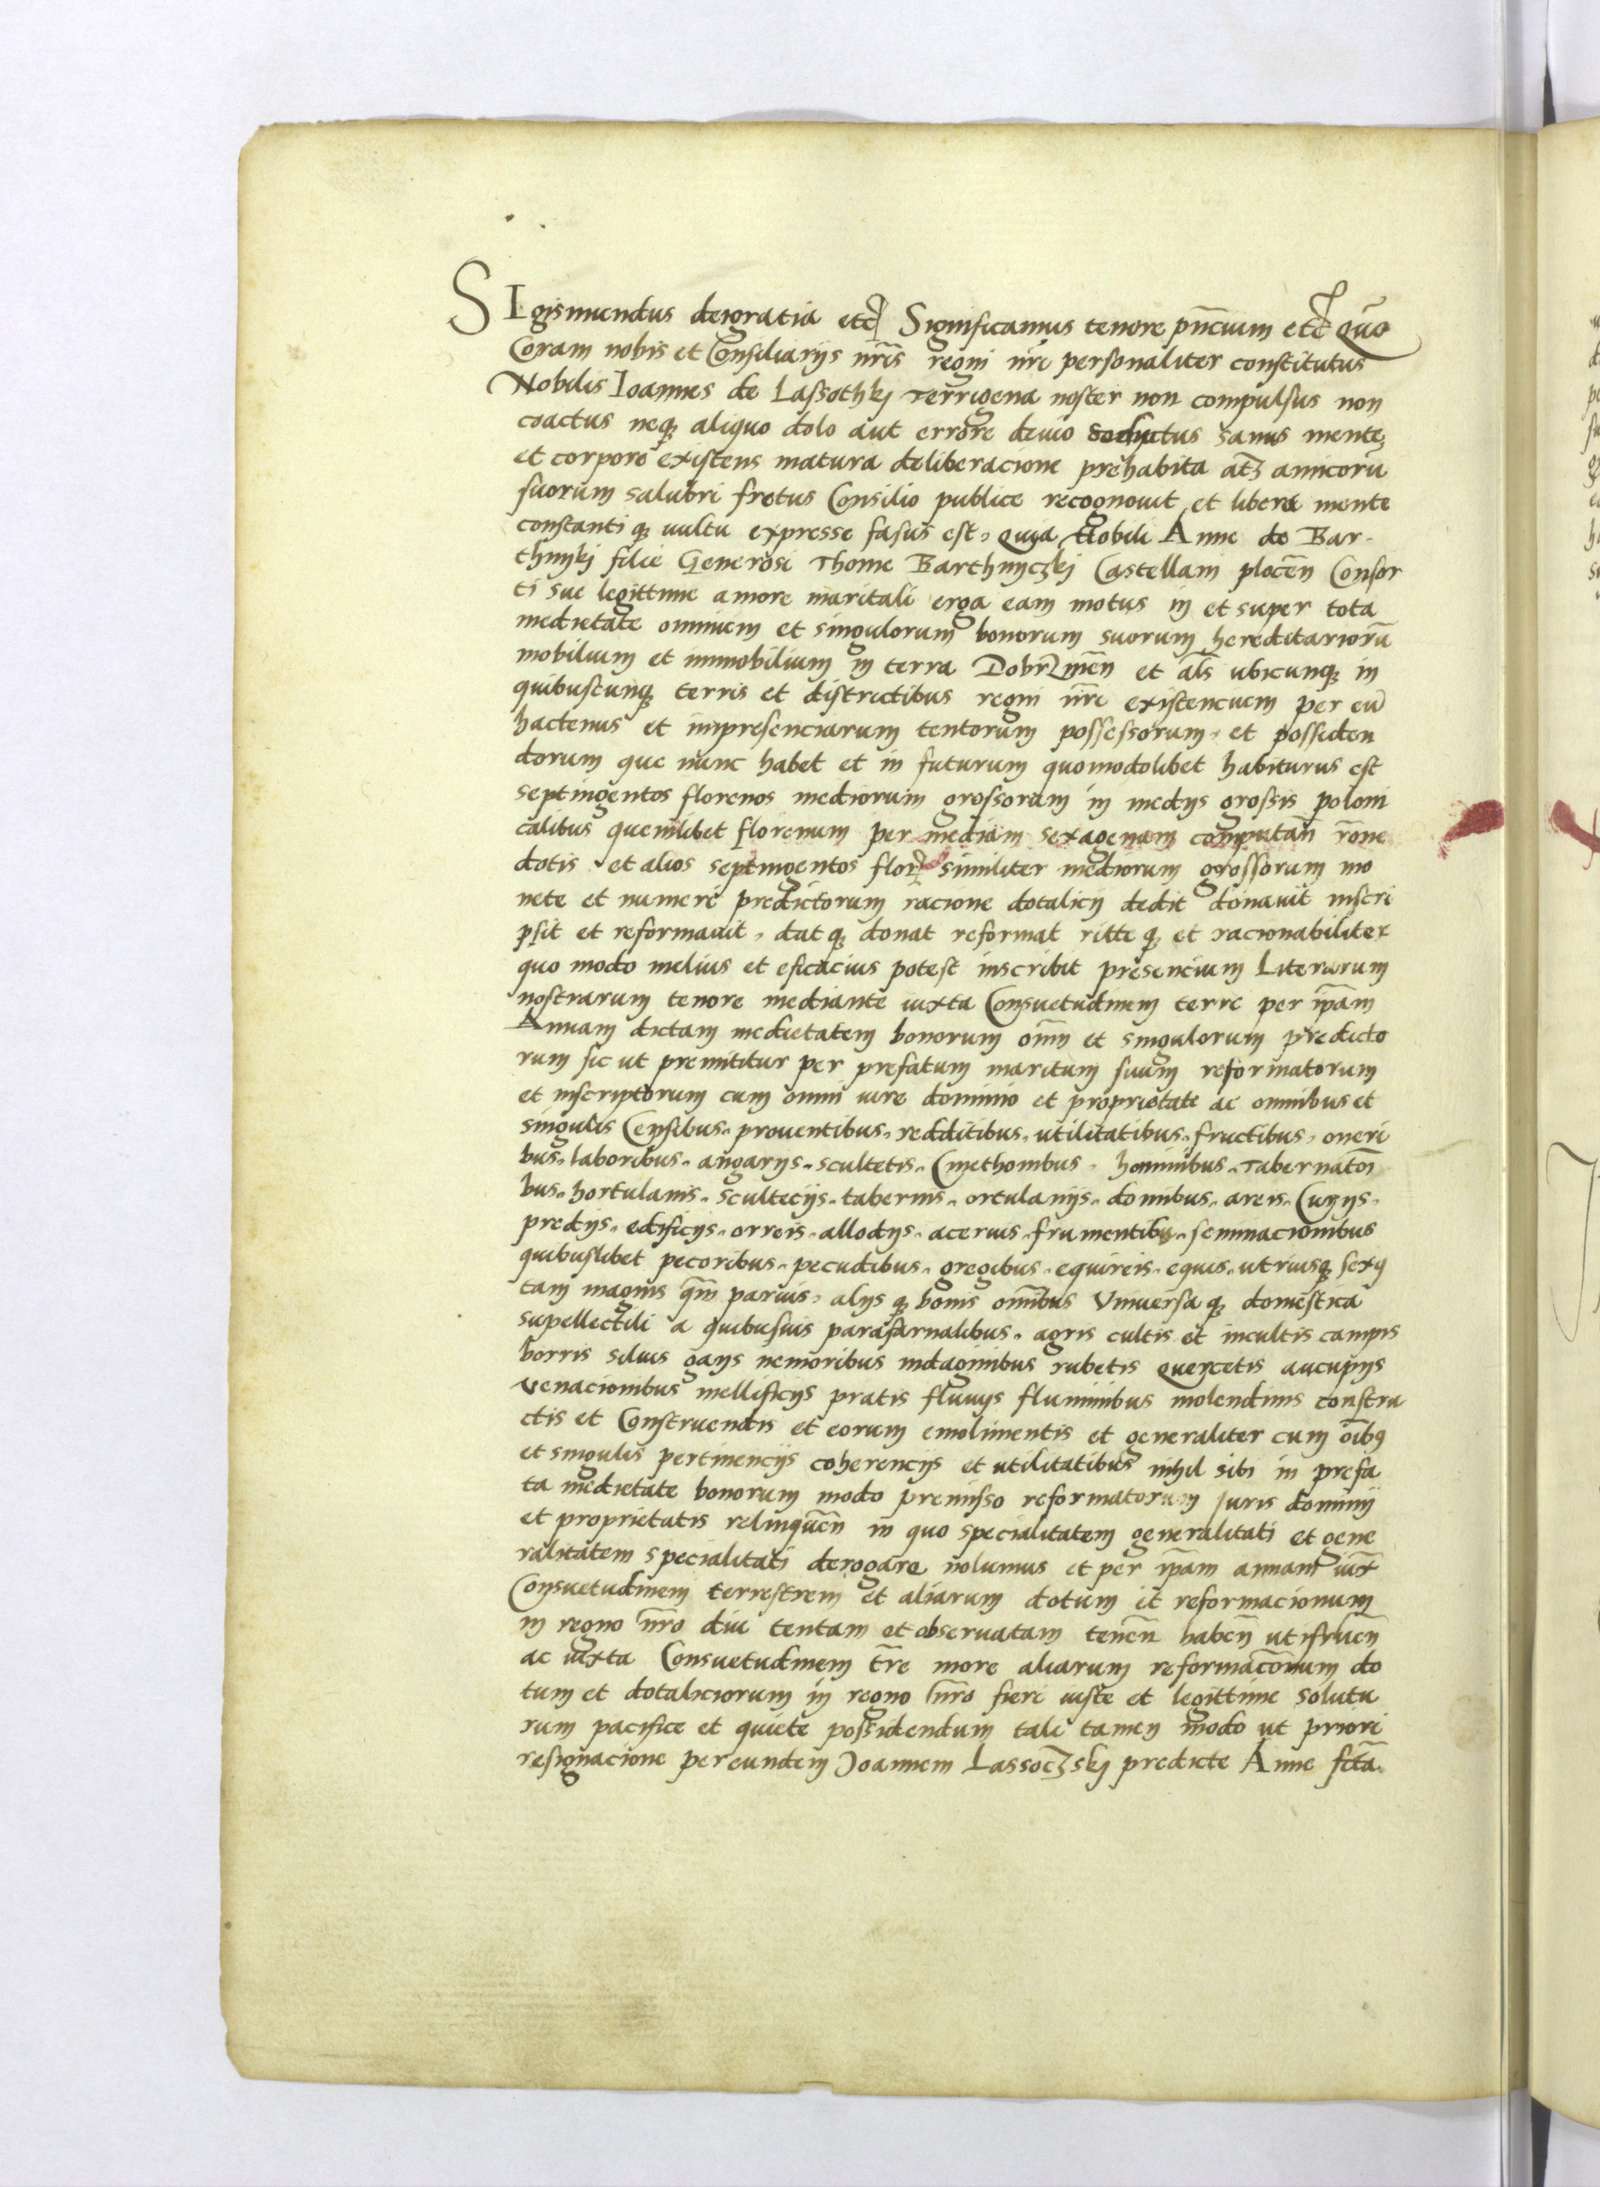 SIgismundus dei gratia etc Significamus tenore pñcium etc Quō
Coram nobis et Consiliarijs nr̄is regni nr̄i personaliter constitutus
Nobilis Ioannes de Lassothkj Terrigena noster non compulsus non
coactus neq₃ aliquo dolo aut errore deuio seductus sanus mente
et corpore existens matura deliberacione prehabita atq₃ amicorū
suorum salubri fretus Consilio publice recognouit et libera mente
constanti q₃ uultu expresse fasus est, quia Nobili Anne de Bar-
thnykj filie Generosi Thome Barthnyczkj Castellani plocēn Consor
ti sue legittime amore maritali erga eam motus in et super tota
medietate omnium et singulorum bonorum suorum hereditariorū
mobilium et immobilium in terra Dobrzinēn et al̄s ubicunq₃ in
quibuscunq₃ terris et districtibus regni nr̄i existencium per eū
hactenus et inpresenciarum tentorum possessorum, et possiden
dorum que nunc habet et in futurum quomodolibet habiturus est
septingentos florenos mediorum grossorum in medijs grossis poloni
calibus quemlibet florenum per mediam sexagenam computañ rōne
dotis et alios septingentos flor similiter mediorum grossorum mo
nete et numeri predictorum racione dotalicij dedit donauit inscri
psit et reformauit, dat q₃ donat reformat ritte q₃ et racionabiliter
quo modo melius et eficacius potest inscribit presencium Literarum
nostrarum tenore mediante iuxta Consuetudinem terre per ip̄am
Annam dictam medietatem bonorum om̄n et singulorum predicto
rum sic ut premititur per prefatum maritum suum reformatorum
et inscriptorum cum omni iure dominio et proprietate ac omnibus et
singulis Censibus, prouentibus, redditibus, utilitatibus, fructibus, oneri
bus, laboribus, angarijs, scultetis, Cmethonibus, hominibus, Tabernatori
bus, hortulanis, scultecijs, tabernis, ortulanijs, domibus, areis, Curijs,
predijs, edificijs, orreis, allodijs, aceruis, frumentibus, seminacionibus
quibuslibet pecoribus, pecudibus, gregibus, equireis, equis, utriusq₃ sexꝰ
tam magnis q̄m paruis, alijs q₃ bonis om̄ibus Vniuersa q₃ domestica
supellectili a quibusuis parafarnalibus, agris cultis et incultis campis
borris siluis gays nemoribus indaginibus rubetis quercetis aucupijs
venacionibus mellificijs pratis fluuijs fluminibus molendinis constru
ctis et Construendis et eorum emolimentis et generaliter cum oībꝰ
et singulis pertinencijs coherencijs et utilitatibus nihil sibi in prefa
ta medietate bonorum modo premisso reformatorum Iuris dominij
et proprietatis relinquēn in quo specialitatem generalitati et gene
ralitatem specialitati derogare nolumus et per ip̄am annam iuxt̄
Consuetudinem terrestrem et aliarum dotum et reformacionum
in regno nr̄o diu tentam et obseruatam tenēn habēn utifruēn
ac iuxta Consuetudinem tr̄e more aliarum reformacōnum do
tum et dotaliciorum in regno nr̄o fieri iuste et legittime solutu
rum pacifice et quiete possidendum tali tamen modo ut priori
resignacione per eundem Joannem Lassoczskj predicte Anne fct̄a